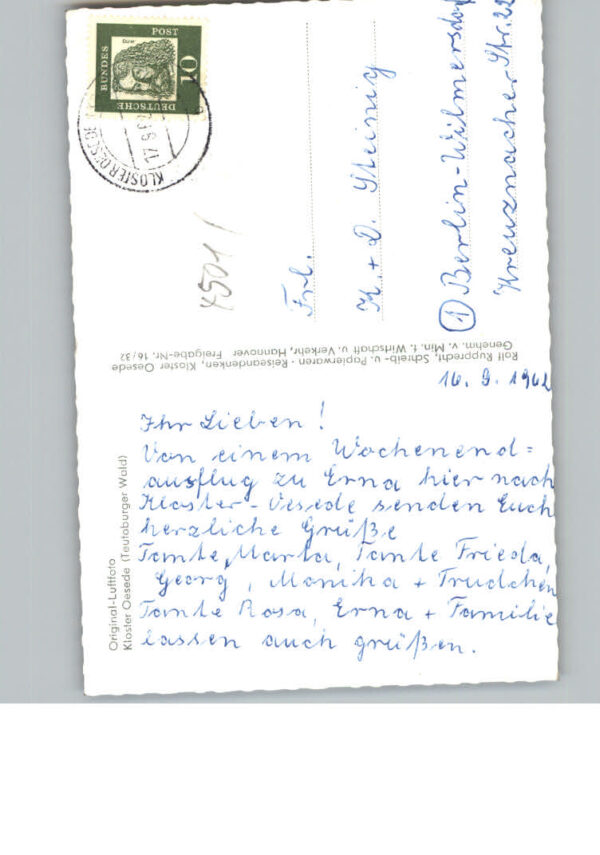 16. 9. 1962
Ihr Lieben!
Von einem Wochenend=
ausflug zu Erna hier nach
Kloster-Oesede senden Euch
herzliche Grüße
Tante Marta, Tante Frieda,
Georg, Monika + Trudchen
Tante Rosa, Erna + Familie
lassen auch grüßen.
Original-Luftfoto
Kloster Oesede (Teutoburger Wald)
Rolf Rupprecht, Schreib- u. Papierwaren - Reiseandenken, Kloster Oesede
Genehm. v. Min. f. Wirtschaft u. Verkehr, Hannover Freigabe-Nr. 16/32
Frl.
K. + D. Steinig
1 Berlin-Wilmersdorf
Kreuznacher Str. 22
DEUTSCHE
BUNDES
POST
10
KLOSTER OESEDE